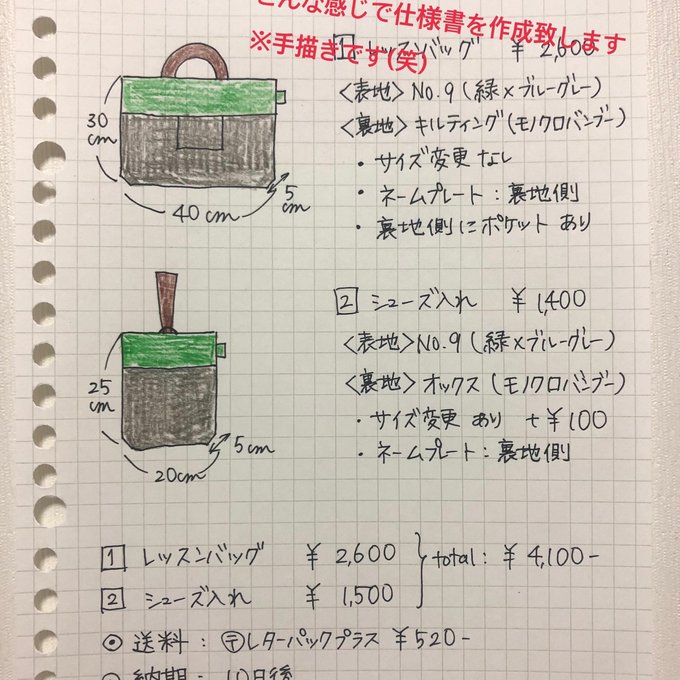 こんな感じで仕様書を作成致します
※手描きです(笑)
1 レッスンバッグ ¥2,600
<表地> No.9 (緑×ブルーグレー)
<裏地> キルティング (モノクロバンブー)
・サイズ変更 なし
・ネームプレート : 裏地側
・裏地側にポケット あり
30cm
40cm
5cm
2 シューズ入れ ¥1,400
<表地> No.9 (緑×ブルーグレー)
<裏地> オックス (モノクロバンブー)
・サイズ変更 あり +¥100
・ネームプレート : 裏地側
25cm
20cm
5cm
1 レッスンバッグ ¥2,600
2 シューズ入れ ¥1,500
total : ¥4,100-
◎ 送料 : 〒レターパックプラス ¥520-
◎ 納期 : 10日後